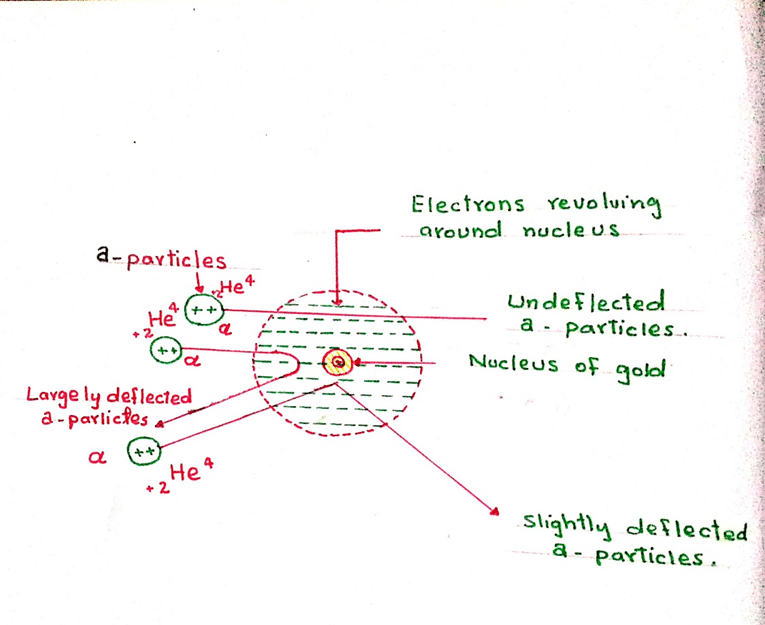 Electrons revolving
around nucleus
a-particles
+2He4
++
α
Undeflected
a - particles.
+2He4
++
α
Nucleus of gold
Largely deflected
a-particles
α
++
+2He4
slightly deflected
a - particles.